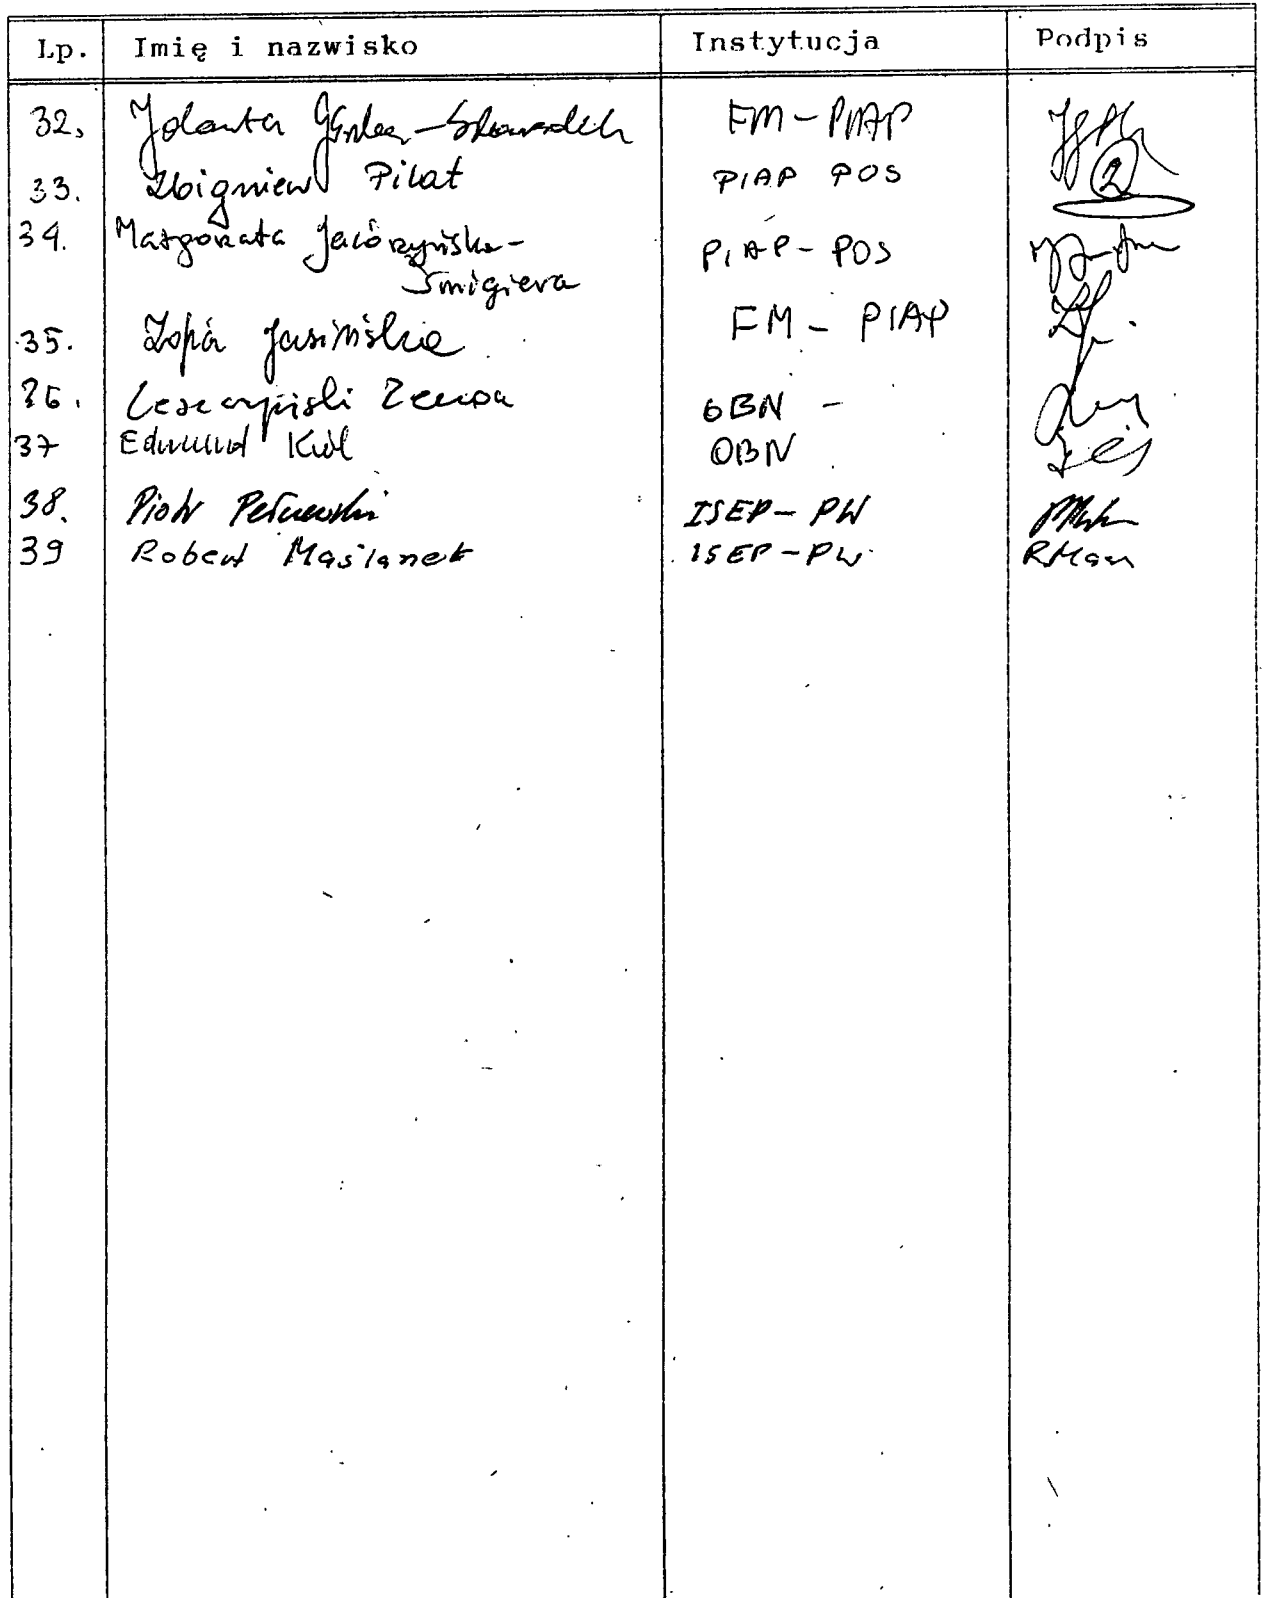 Lp. Imię i nazwisko Instytucja Podpis
32. Jolanta FM - PIAP
33. Zbigniew Pilat PIAP POS 2
34. Małgorzata Jaworzyńska - PIAP - POS
Smigiera
35. Zofia Jasińska FM - PIAP
36. OBN -
37 Edmund Król OBN
38. Piotr ISEP - PW
39 Robert Maślanek ISEP - PW RMan